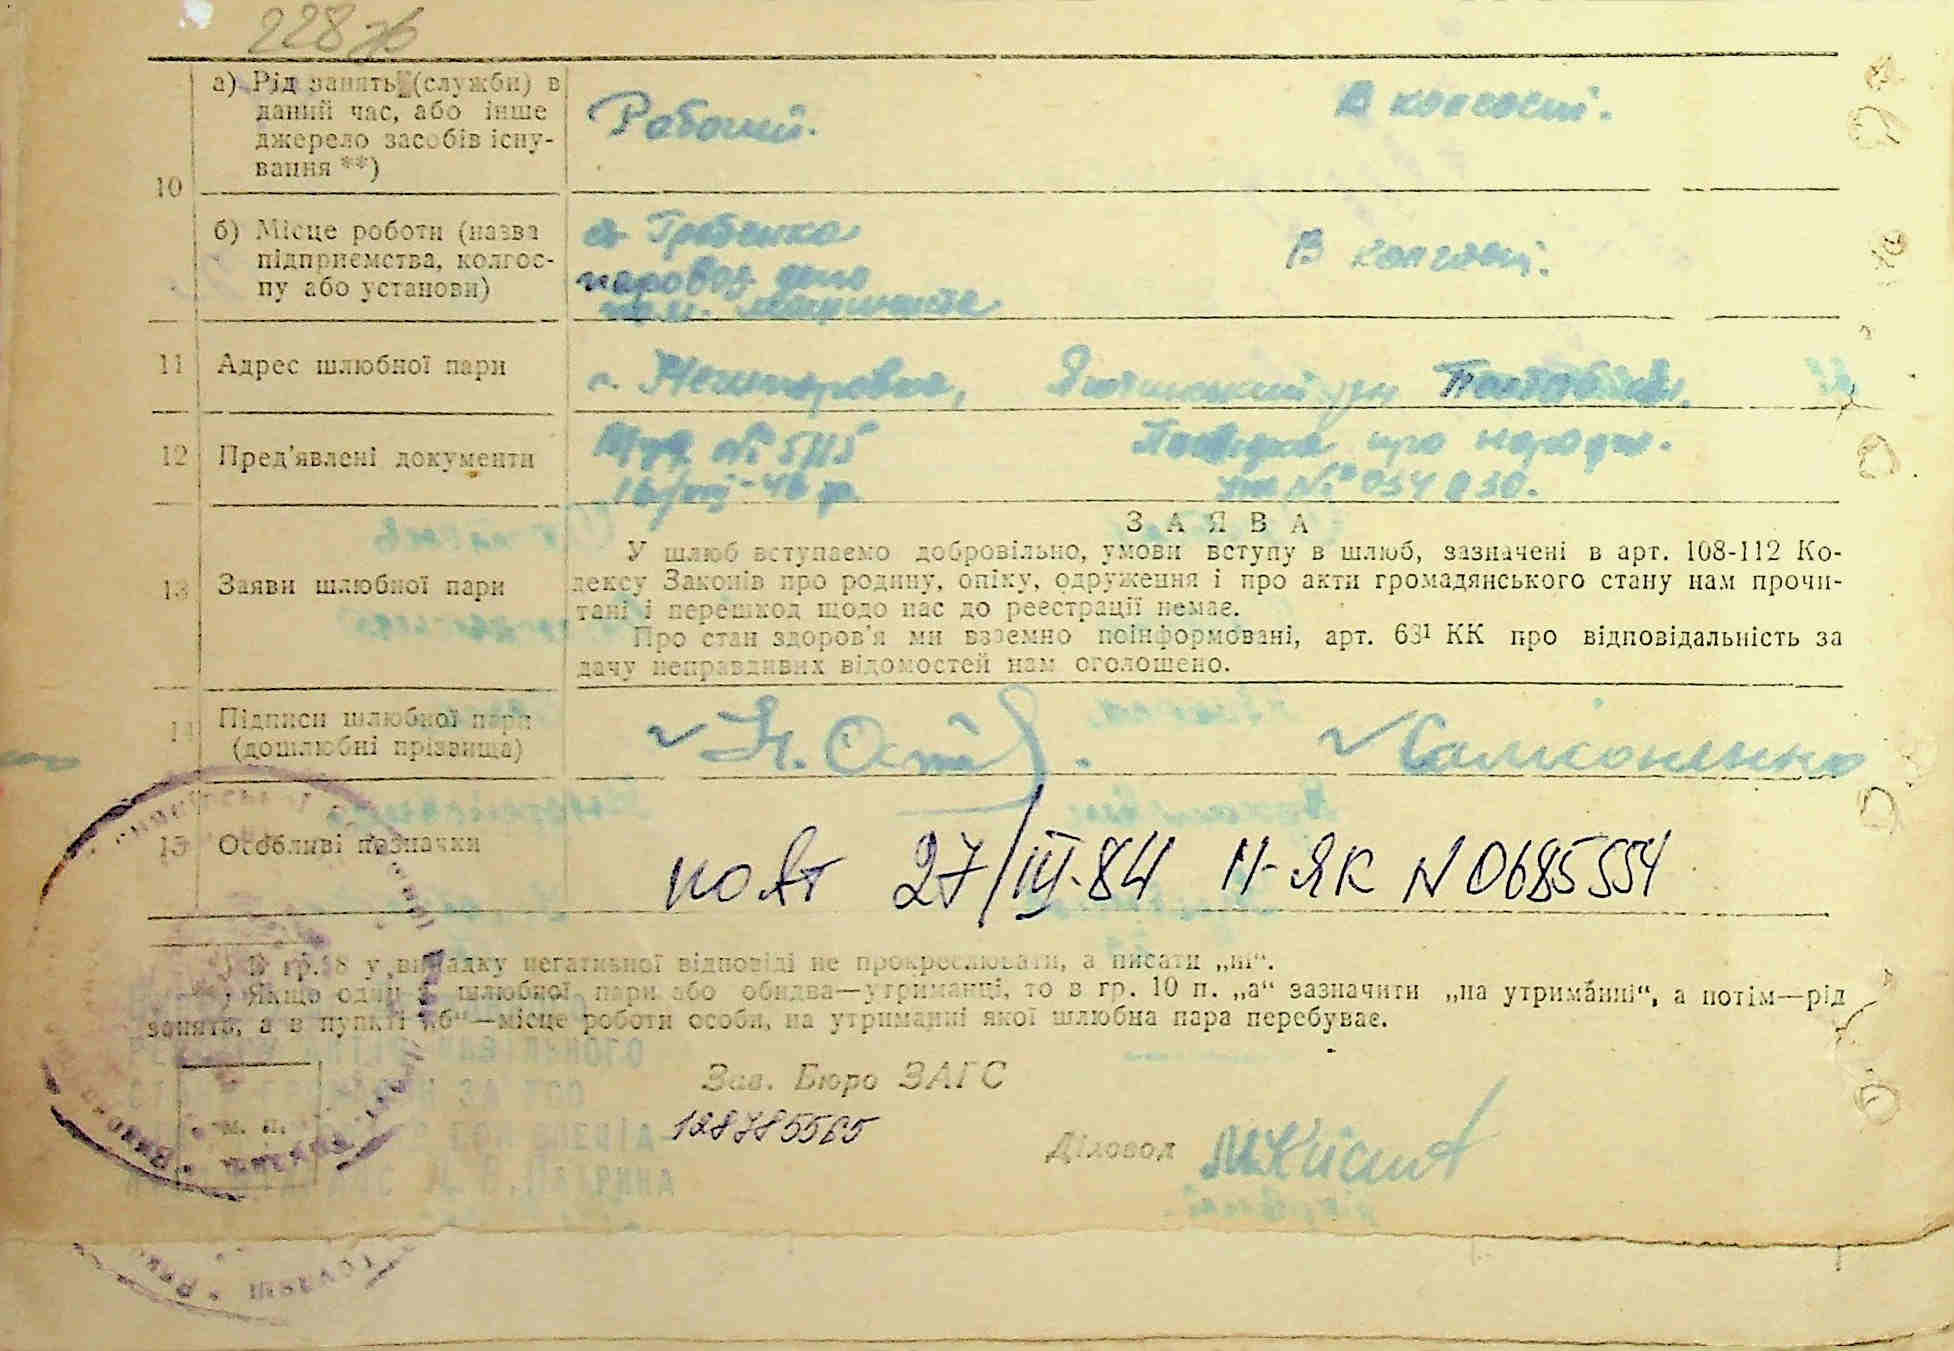 228 зв
10
а) Рід занять (служби) в
даний час, або інше
джерело засобів існу-
вання **)
Рабочий.
В колгоспі.
б) Місце роботи (назва
підприємства, колгос-
пу або установи)
ст Гребенка
паровоз депо
пом. машиниста
В колгоспі.
11 Адрес шлюбної пари
с. Яготинський р-н
12 Пред'явлені документи
№ 5115
16/VII-46 р.
Посвідка про народж.
№ 054030.
13 Заяви шлюбної пари
ЗАЯВА
У шлюб вступаємо добровільно, умови вступу в шлюб, зазначені в арт. 108-112 Ко-
дексу Законів про родину, опіку, одруження і про акти громадянського стану нам прочи-
тані і перешкод щодо нас до реєстрації немає.
Про стан здоров'я ми взаємно поінформовані, арт. 63¹ КК про відповідальність за
дачу неправдивих відомостей нам оголошено.
14 Підписи шлюбної пари
(дошлюбні прізвища)
Самсоненко
15 Особливі позначки
повт 27/III-84 II-ЯК N 0685554
В гр. 8 у випадку негативної відповіді не прокреслювати, а писати „ні“.
Якщо один з шлюбної пари або обидва—утриманці, то в гр. 10 п. „а“ зазначити „на утриманні“, а потім—рід
занять, а в пункті „б“—місце роботи особи, на утриманні якої шлюбна пара перебуває.
Зав. Бюро ЗАГС
128785565
м. п.
Діловод